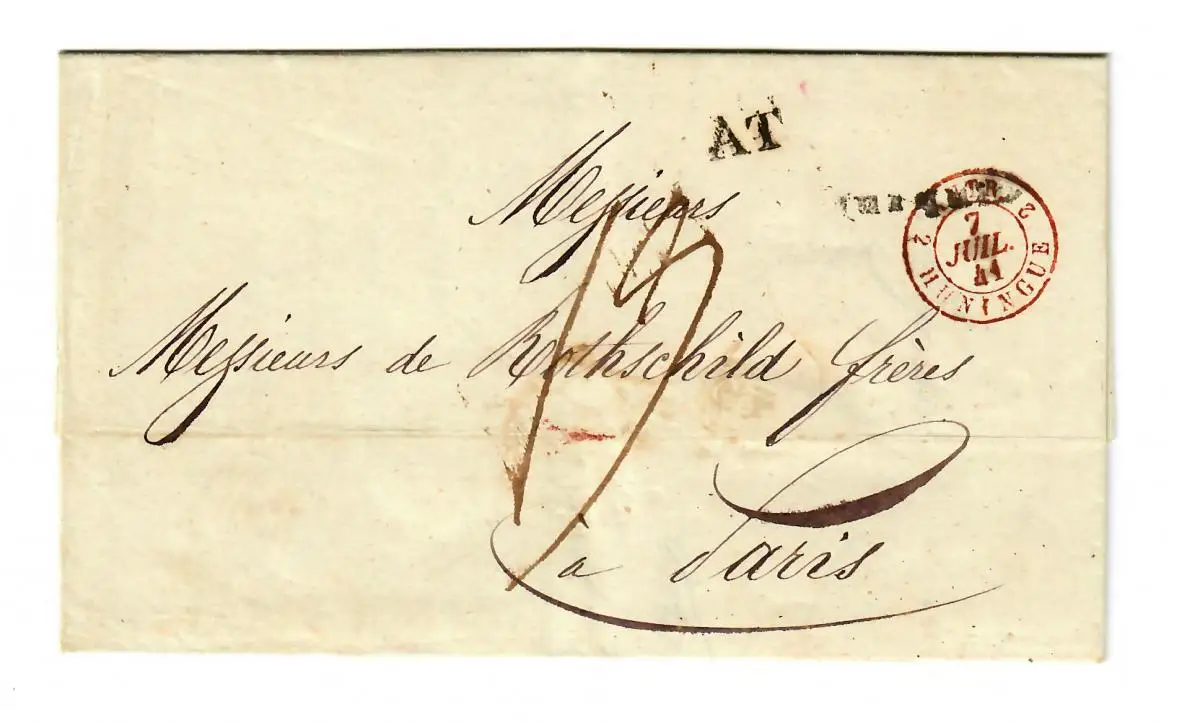 AT
Messieurs
7
JUIL.
41
2 HUNINGUE 2
Messieurs de Rothschild frères
à Paris